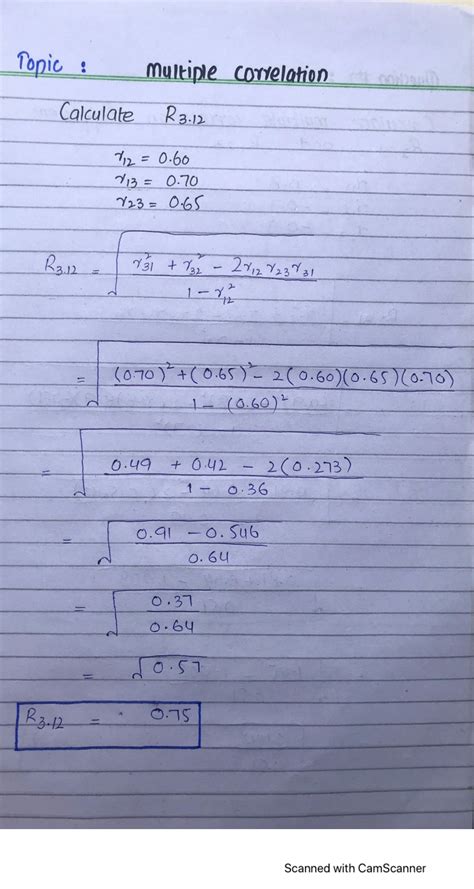 Topic : multiple correlation
Calculate R3.12
r12 = 0.60
r13 = 0.70
r23 = 0.65
R3.12 = √((r²31 + r²32 − 2r12 r23 r31) / (1 − r²12))
= √(((0.70)² + (0.65)² − 2(0.60)(0.65)(0.70)) / (1 − (0.60)²))
= √((0.49 + 0.42 − 2(0.273)) / (1 − 0.36))
= √((0.91 − 0.546) / 0.64)
= √(0.37 / 0.64)
= √0.57
R3.12 = 0.75
Scanned with CamScanner